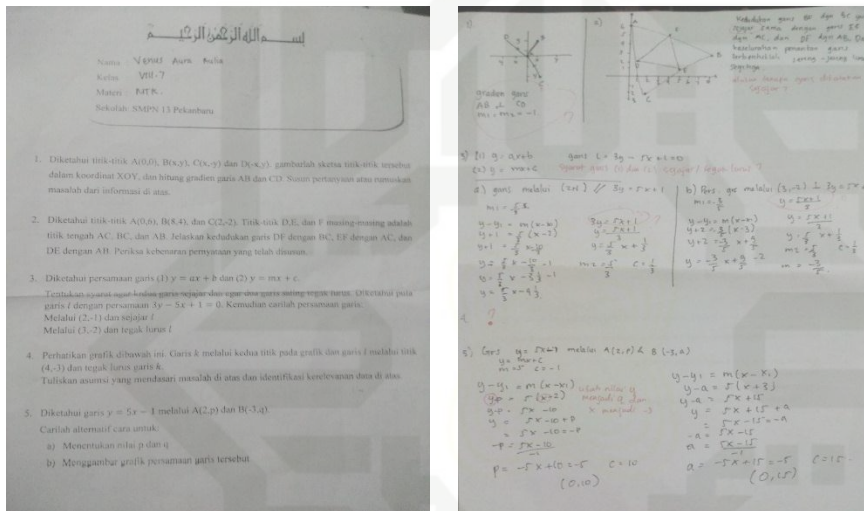 بسم الله الرحمن الرحيم
Nama : Venus Aura Aulia
Kelas : VIII-7
Materi : MTK.
Sekolah: SMPN 13 Pekanbaru
1. Diketahui titik-titik A(0,0), B(x,y), C(x,-y) dan D(-x,y). gambarlah sketsa titik-titik tersebut
dalam koordinat XOY, dan hitung gradien garis AB dan CD. Susun pertanyaan atau rumuskan
masalah dari informasi di atas.
2. Diketahui titik-titik A(0,6), B(8,4), dan C(2,-2). Titik-titik D,E, dan F masing-masing adalah
titik tengah AC, BC, dan AB. Jelaskan kedudukan garis DF dengan BC, EF dengan AC, dan
DE dengan AB. Periksa kebenaran pernyataan yang telah disusun.
3. Diketahui persamaan garis (1) y = ax + b dan (2) y = mx + c.
Tentukan syarat agar kedua garis sejajar dan agar dua garis saling tegak lurus. Diketahui pula
garis l dengan persamaan 3y − 5x + 1 = 0. Kemudian carilah persamaan garis:
Melalui (2,-1) dan sejajar l
Melalui (3,-2) dan tegak lurus l
4. Perhatikan grafik dibawah ini. Garis k melalui kedua titik pada grafik dan garis l melalui titik
(4,-3) dan tegak lurus garis k.
Tuliskan asumsi yang mendasari masalah di atas dan identifikasi kerelevanan data di atas.
5. Diketahui garis y = 5x − 1 melalui A(2,p) dan B(-3,q).
Carilah alternatif cara untuk:
a) Menentukan nilai p dan q
b) Menggambar grafik persamaan garis tersebut
1)
gradien garis
AB & CD
m1 . m2 = -1
2)
Kedudukan garis DF dgn BC
sejajar sama dengan garis EF
dgn AC, dan DE dgn AB.
keseluruhan
segitiga
sejajar ?
3) (1) y = ax+b garis l = 3y - 5x + 1 = 0
(2) y = mx + c
a) garis melalui (2,-1) // 3y = 5x + 1
y - y1 = m (x - x1)
y + 1 = 5/3 (x - 2)
y + 1 = 5/3 x - 10/3
y = 5/3 x - 10/3 - 1
3y = 5x + 1
y = 5x + 1 / 3
y = 5/3 x + 1/3
m2 = 5/3 c = 1/3
b) Pers. grs melalui (3,-2)
y - y1 = m (x - x1)
y = 5x + 1 / 3
y = 5/3 x + 1/3
4. ?
5) Garis y = 5x - 1 melalui A(2,p) & B(-3,q)
y = mx + c
m = 5 c = -1
y - y1 = m (x - x1)
= 5 (x - 2)
y - p = 5x - 10
y = 5x - 10 + p
= 5x - 10 = -p
-p = 5x - 10 / -1
p = -5x + 10 = -5 c = 10
(0,10)
ubah nilai y
menjadi q dan
x menjadi -3
y - y1 = m (x - x1)
y - q = 5 (x + 3)
y - q = 5x + 15
y = 5x + 15 + q
= 5x - 15 = -q
-q = 5x - 15
q = 5x - 15 / -1
q = -5x + 15 = -5 c = 15
(0,15)